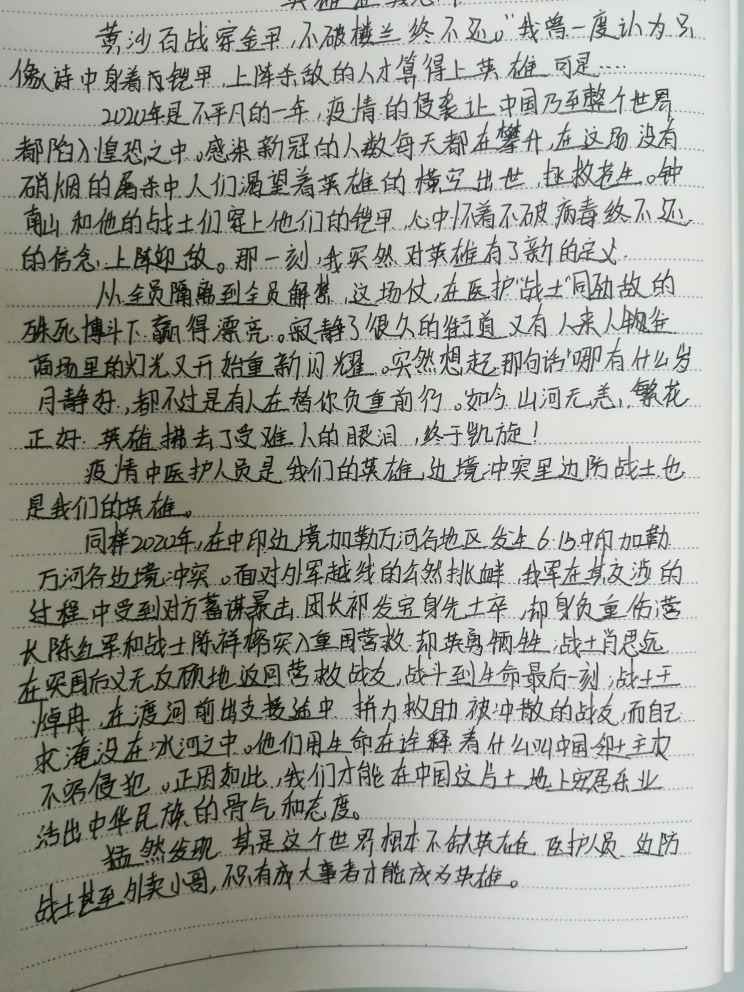 英雄在我心中
黄沙百战穿金甲,不破楼兰终不还。"我曾一度认为只
像诗中身着丙铠甲,上阵杀敌的人才算得上英雄 可是……
2020年是不平凡的一年,疫情的侵袭让中国乃至整个世界
都陷入惶恐之中。感染新冠的人数每天都在攀升,在这场没有
硝烟的屠杀中人们渴望着英雄的横空出世,拯救苍生。钟
南山和他的战士们穿上他们的铠甲 心中怀着不破病毒终不还
的信念,上阵迎敌。那一刻,我突然对英雄有了新的定义.
从全员隔离到全员解禁,这场仗,在医护"战士"同劲敌的
殊死博斗下赢得漂亮。寂静了很久的街道又有人来人往
商场里的灯光又开始重新闪耀。突然想起那句话"哪有什么岁
月静好,都不过是有人在替你负重前行。如今山河无恙,繁花
正好 英雄拂去了受难人的眼泪,终于凯旋!
疫情中医护人员是我们的英雄,边境冲突里边防战士也
是我们的英雄。
同样2020年,在中印边境加勒万河谷地区发生6·15中印加勒
万河谷边境冲突。面对外军越线的公然挑衅,我军在其交涉的
过程中受到对方蓄谋暴击,团长祁发宝身先士卒,却身负重伤;营
长陈红军和战士陈祥榕突入重围营救,却英勇牺牲;战士肖思远
在突围后义无反顾地返回营救战友,战斗到生命最后一刻;战士王
焯冉,在渡河前出支援途中 拼力救助被冲散的战友,而自己
淹没在冰河之中。他们用生命在诠释着什么叫中国领土主权
不容侵犯。正因如此,我们才能在中国这片土地上安居乐业
活出中华民族的骨气和态度。
猛然发现 其是这个世界根本不缺英雄 医护人员 边防
战士甚至外卖小哥,不只有成大事者才能成为英雄。